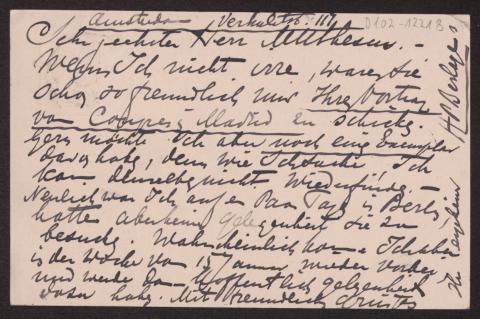 Amsterdam Verhulststr. 111
D102-1221B
Sehr geehrter Herr Muthesius. -
Wenn Ich nicht irre, waren Sie
schon so freundlich mir Ihren Vortrag
vom Congress Madrid zu schicken.
Gern möchte Ich aber noch ein Exemplar
davon haben, denn wie Ich suche Ich
kan denselben nicht wiederfinden. -
Neulich war Ich auf ein Paar Tage in Berlin,
hatte aber kein gelegenheit Sie zu
besuchen. Wahrscheinlich komme Ich aber
in der Woche vom 15 Januar wieder vorbei
und werde dann hoffentlich gelegenheit
dazu haben. Mit freundlichen Gruss
Ihr ergebener H P Berlage